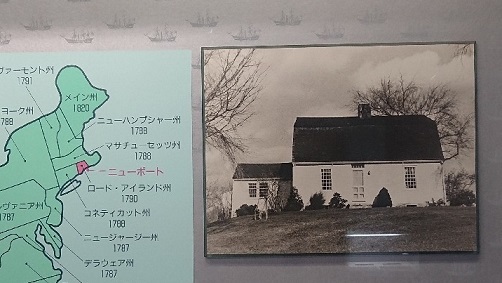 ヴァーモント州
1791
メイン州
1820
ヨーク州
1788
ニューハンプシャー州
1788
マサチューセッツ州
1788
ニューポート
ロード・アイランド州
1790
コネティカット州
1788
ルヴァニア州
1787
ニュージャージー州
1787
デラウェア州
1787